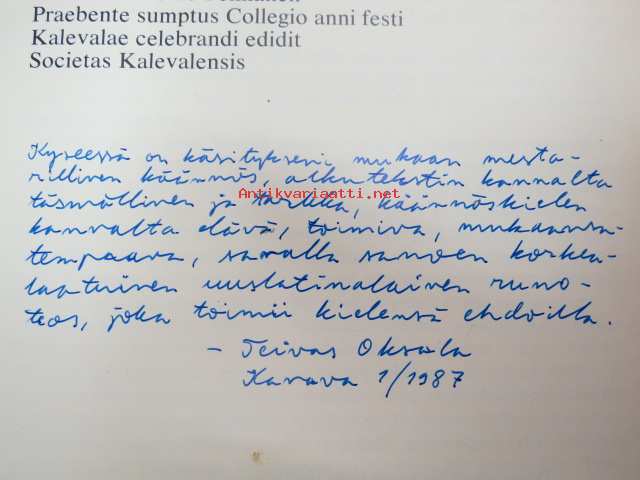 Praebente sumptus Collegio anni festi
Kalevalae celebrandi edidit
Societas Kalevalensis
Kyseessä on käsitykseni mukaan mesta-
rillinen käännös, alkutekstin kannalta
Antikvariaatti.net
täsmällinen ja tarkka, käännöskielen
kannalta elävä, toimiva, mukaansa-
tempaava, samalla sanoen korkea-
laatuinen uuslatinalainen runo-
teos, joka toimii kielensä ehdoilla.
- Teivas Oksala
Karava 1/1987